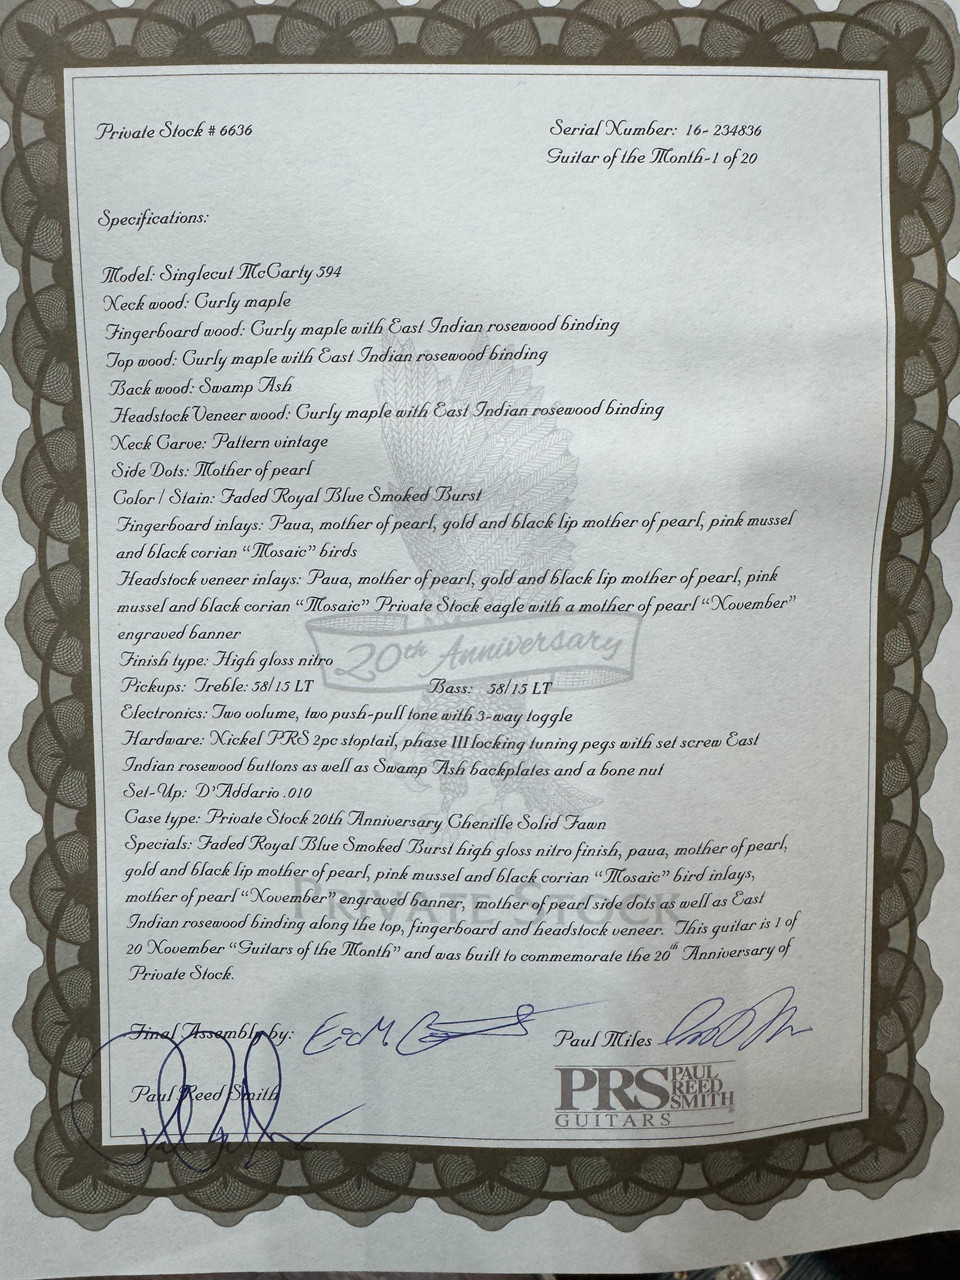 Private Stock # 6636
Serial Number: 16- 234836
Guitar of the Month-1 of 20
Specifications:
Model: Singlecut McCarty 594
Neck wood: Curly maple
Fingerboard wood: Curly maple with East Indian rosewood binding
Top wood: Curly maple with East Indian rosewood binding
Back wood: Swamp Ash
Headstock Veneer wood: Curly maple with East Indian rosewood binding
Neck Carve: Pattern vintage
Side Dots: Mother of pearl
Color / Stain: Faded Royal Blue Smoked Burst
Fingerboard inlays: Paua, mother of pearl, gold and black lip mother of pearl, pink mussel
and black corian “Mosaic” birds
Headstock veneer inlays: Paua, mother of pearl, gold and black lip mother of pearl, pink
mussel and black corian “Mosaic” Private Stock eagle with a mother of pearl “November”
engraved banner
20th Anniversary
Finish type: High gloss nitro
Pickups: Treble: 58/15 LT Bass: 58/15 LT
Electronics: Two volume, two push-pull tone with 3-way toggle
Hardware: Nickel PRS 2pc stoptail, phase III locking tuning pegs with set screw East
Indian rosewood buttons as well as Swamp Ash backplates and a bone nut
Set-Up: D'Addario .010
Case type: Private Stock 20th Anniversary Chenille Solid Fawn
Specials: Faded Royal Blue Smoked Burst high gloss nitro finish, paua, mother of pearl,
gold and black lip mother of pearl, pink mussel and black corian “Mosaic” bird inlays,
mother of pearl “November” engraved banner, mother of pearl side dots as well as East
PRIVATE STOCK
Indian rosewood binding along the top, fingerboard and headstock veneer. This guitar is 1 of
20 November “Guitars of the Month” and was built to commemorate the 20th Anniversary of
Private Stock.
Final Assembly by:
Paul Miles
Paul Reed Smith
PRS PAUL REED SMITH
GUITARS